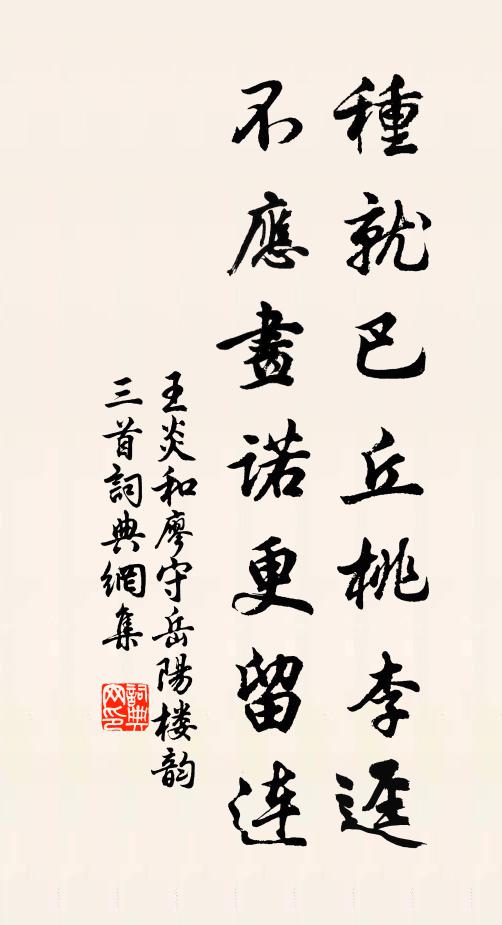 種就巴丘桃李逕
不應畫諾更留連
王炎和廖守岳陽楼韵
三首詞典網集
詞典
网印